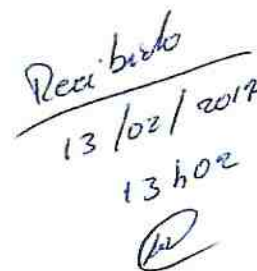 Recibido
13/02/2017
13h02